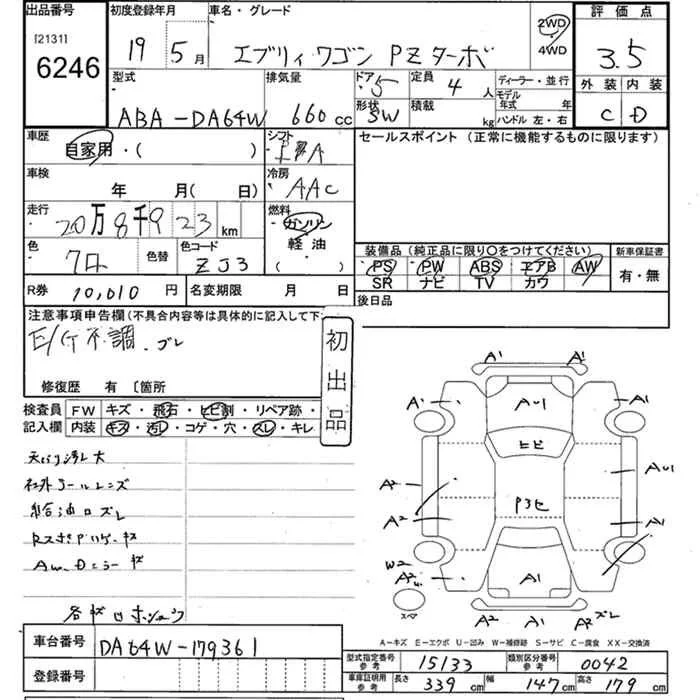 出品番号 初度登録年月 車名・グレード 評価点
[2131] 6246 19 5月 エブリィワゴン PZターボ 2WD 4WD 3.5
型式 排気量 ドア 5 定員 4人 ディーラー・並行 外装 内装
ABA-DA64W 660cc 形状 SW 積載 kg モデル年式 年 ハンドル 左・右 C D
車歴 自家用・( ) シフト セールスポイント (正常に機能するものに限ります)
車検 年 月( 日) 冷房 AAC
走行 20万8千923km 燃料 ガソリン 軽油 ( )
色 色替 色コード ZJ3
装備品(純正品に限り○をつけてください) 新車保証書
PS PW ABS エアB AW 有・無
SR ナビ TV カワ
R券 10,010円 名変期限 月 日 後日品
注意事項申告欄(不具合内容等は具体的に記入して下
不調
初出品
修復歴 有 〔箇所
検査員 FW キズ・飛石・ヒビ割・リペア跡・
記入欄 内装 キズ・汚レ・コゲ・穴・スレ・キレ
天バリ汚レ大
社外テールレンズ
給油口ズレ
RスポPハゲ・キズ
AW・Dミラーキズ
A1 A1
A1 AU1 A1
ヒビ
A2 AU1
A2 Pヨセ A1
W2
A2 A1
スペ
A2 A1 A2 ズレ
A-キズ E-エクボ U-凹み W-補修跡 S-サビ C-腐食 XX-交換済
車台番号 DA64W-179361
登録番号
型式指定番号 参考 15133 類別区分番号 参考 0042
車庫証明用 参考 長さ 339cm 幅 147cm 高さ 179cm